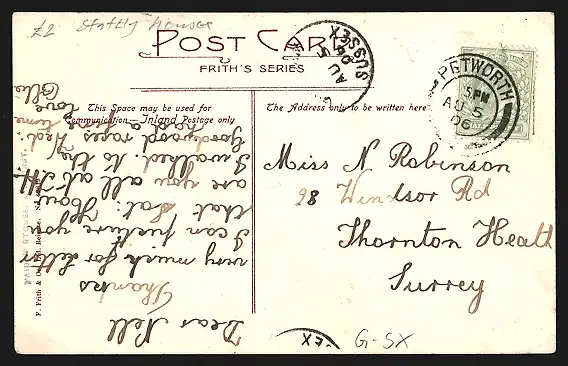 £2 Stately houses
POST CARD
FRITH'S SERIES
This Space may be used for
Communication—Inland Postage only
The Address only to be written here
PETWORTH
5 PM
AU 5
06
SUSSEX
AU
Miss N Robinson
28 Windsor Rd
Thornton Heath
Surrey
G-SX
EX
Dear Nell
Thanks
very much for letter
I can picture you
that Sat: How
are you all at
I walked to the
Goodwood races Wed:
had a fine
time
love
Ollie
F. Frith &